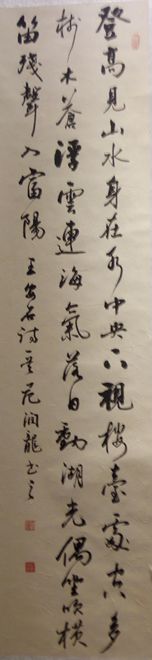 登高見山水身在水中央下視樓臺處空多
樹木蒼浮雲連海氣落日動湖光偶坐吹橫
笛殘聲入富陽 王安石詩 潤龍書